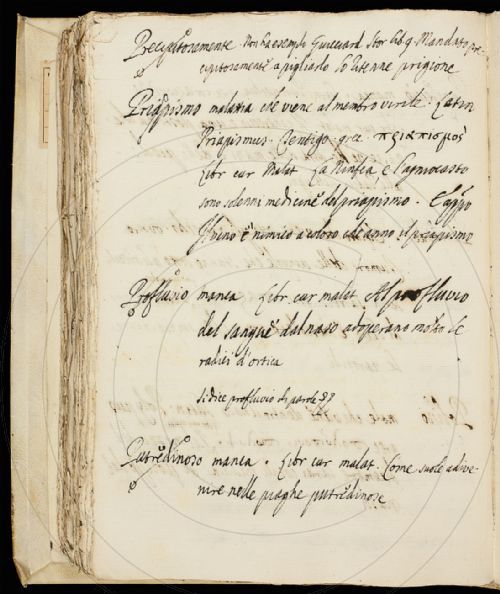 Precipitosamente. Non ha esempio Guicciard. Stor. lib. 9. Mandato pre
cipitosamente a pigliarlo lo ritenne prigione
Priapismo malattia che viene al membro virile. Latin
Priapismus. Tentigo. grec. πριαπισμος
Libr. cur. Malat. La Ninfea, e l'agnocasto
sono solenni medicine del priapismo. E appo
Il vino è nimico a coloro che anno il priapismo
Profluvio manca Libr. cur. malat. Al profluvio
del sangue dal naso adoperano molto le
radici d'ortica
si dice profluvio di parole
Putredinoso manca. Libr. cur. malat. Come suole adive-
nire nelle piaghe putredinose